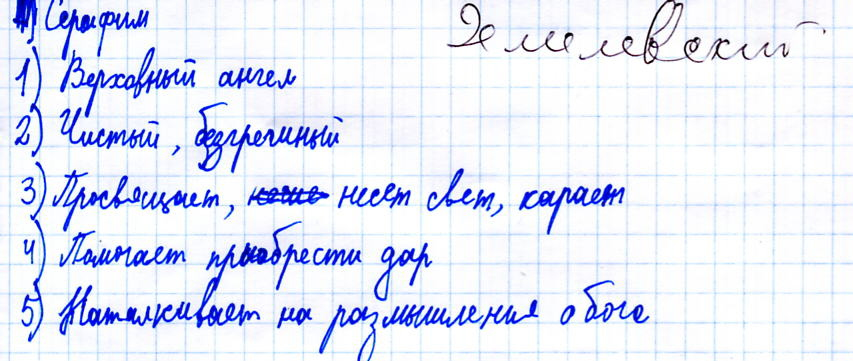 Серафим
1) Верховный ангел
2) Чистый, безгречиный
3) Просвящает, несет свет, карает
4) Помогает приобрести дар
5) Наталкивает на размышления о боге